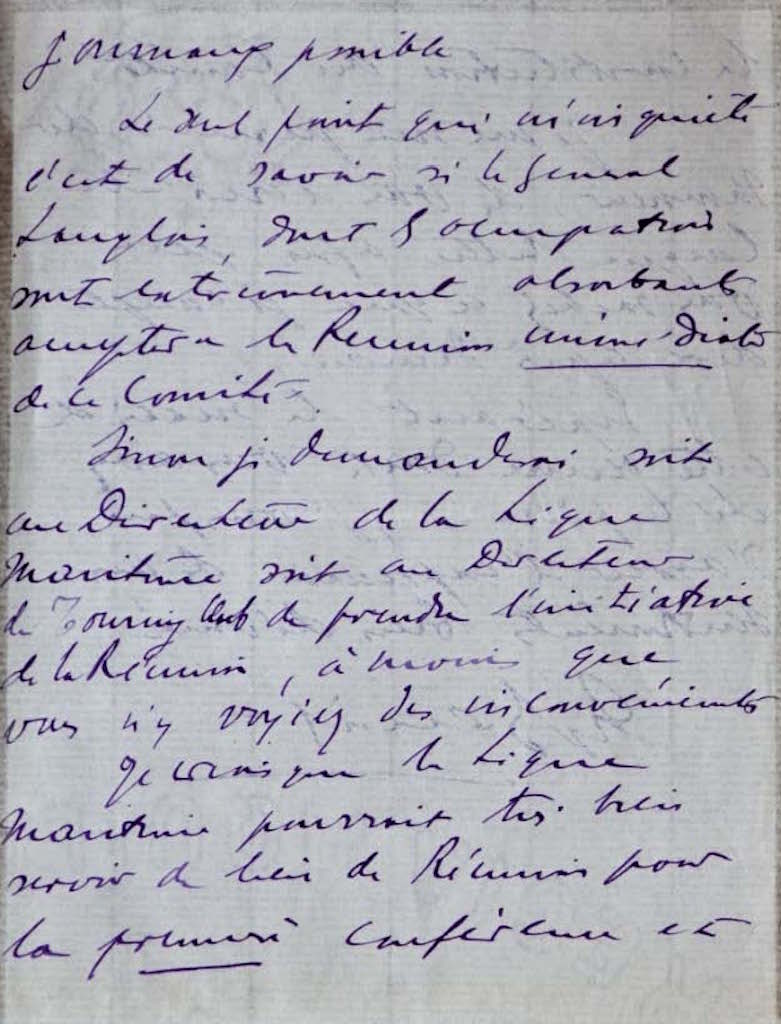 Journaux possible
Le seul point qui m'inquiète
c'est de savoir si le général
Langlois, dont l'occupation
sont extrêmement absorbants
acceptera la Réunion immédiate
de ce Comité.
Sinon je demanderai soit
au Directeur de la Ligue
Maritime soit au Directeur
du Touring Club de prendre l'initiative
de la Réunion, à moins que
vous n'y voyiez des inconvénients
Je crois que la Ligue
Maritime pourrait très bien
servir de lieu de Réunion pour
la première conférence et